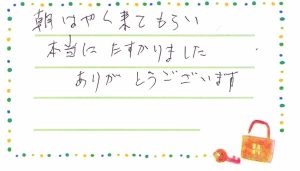 朝はやく来てもらい
本当にたすかりました
ありがとうございます